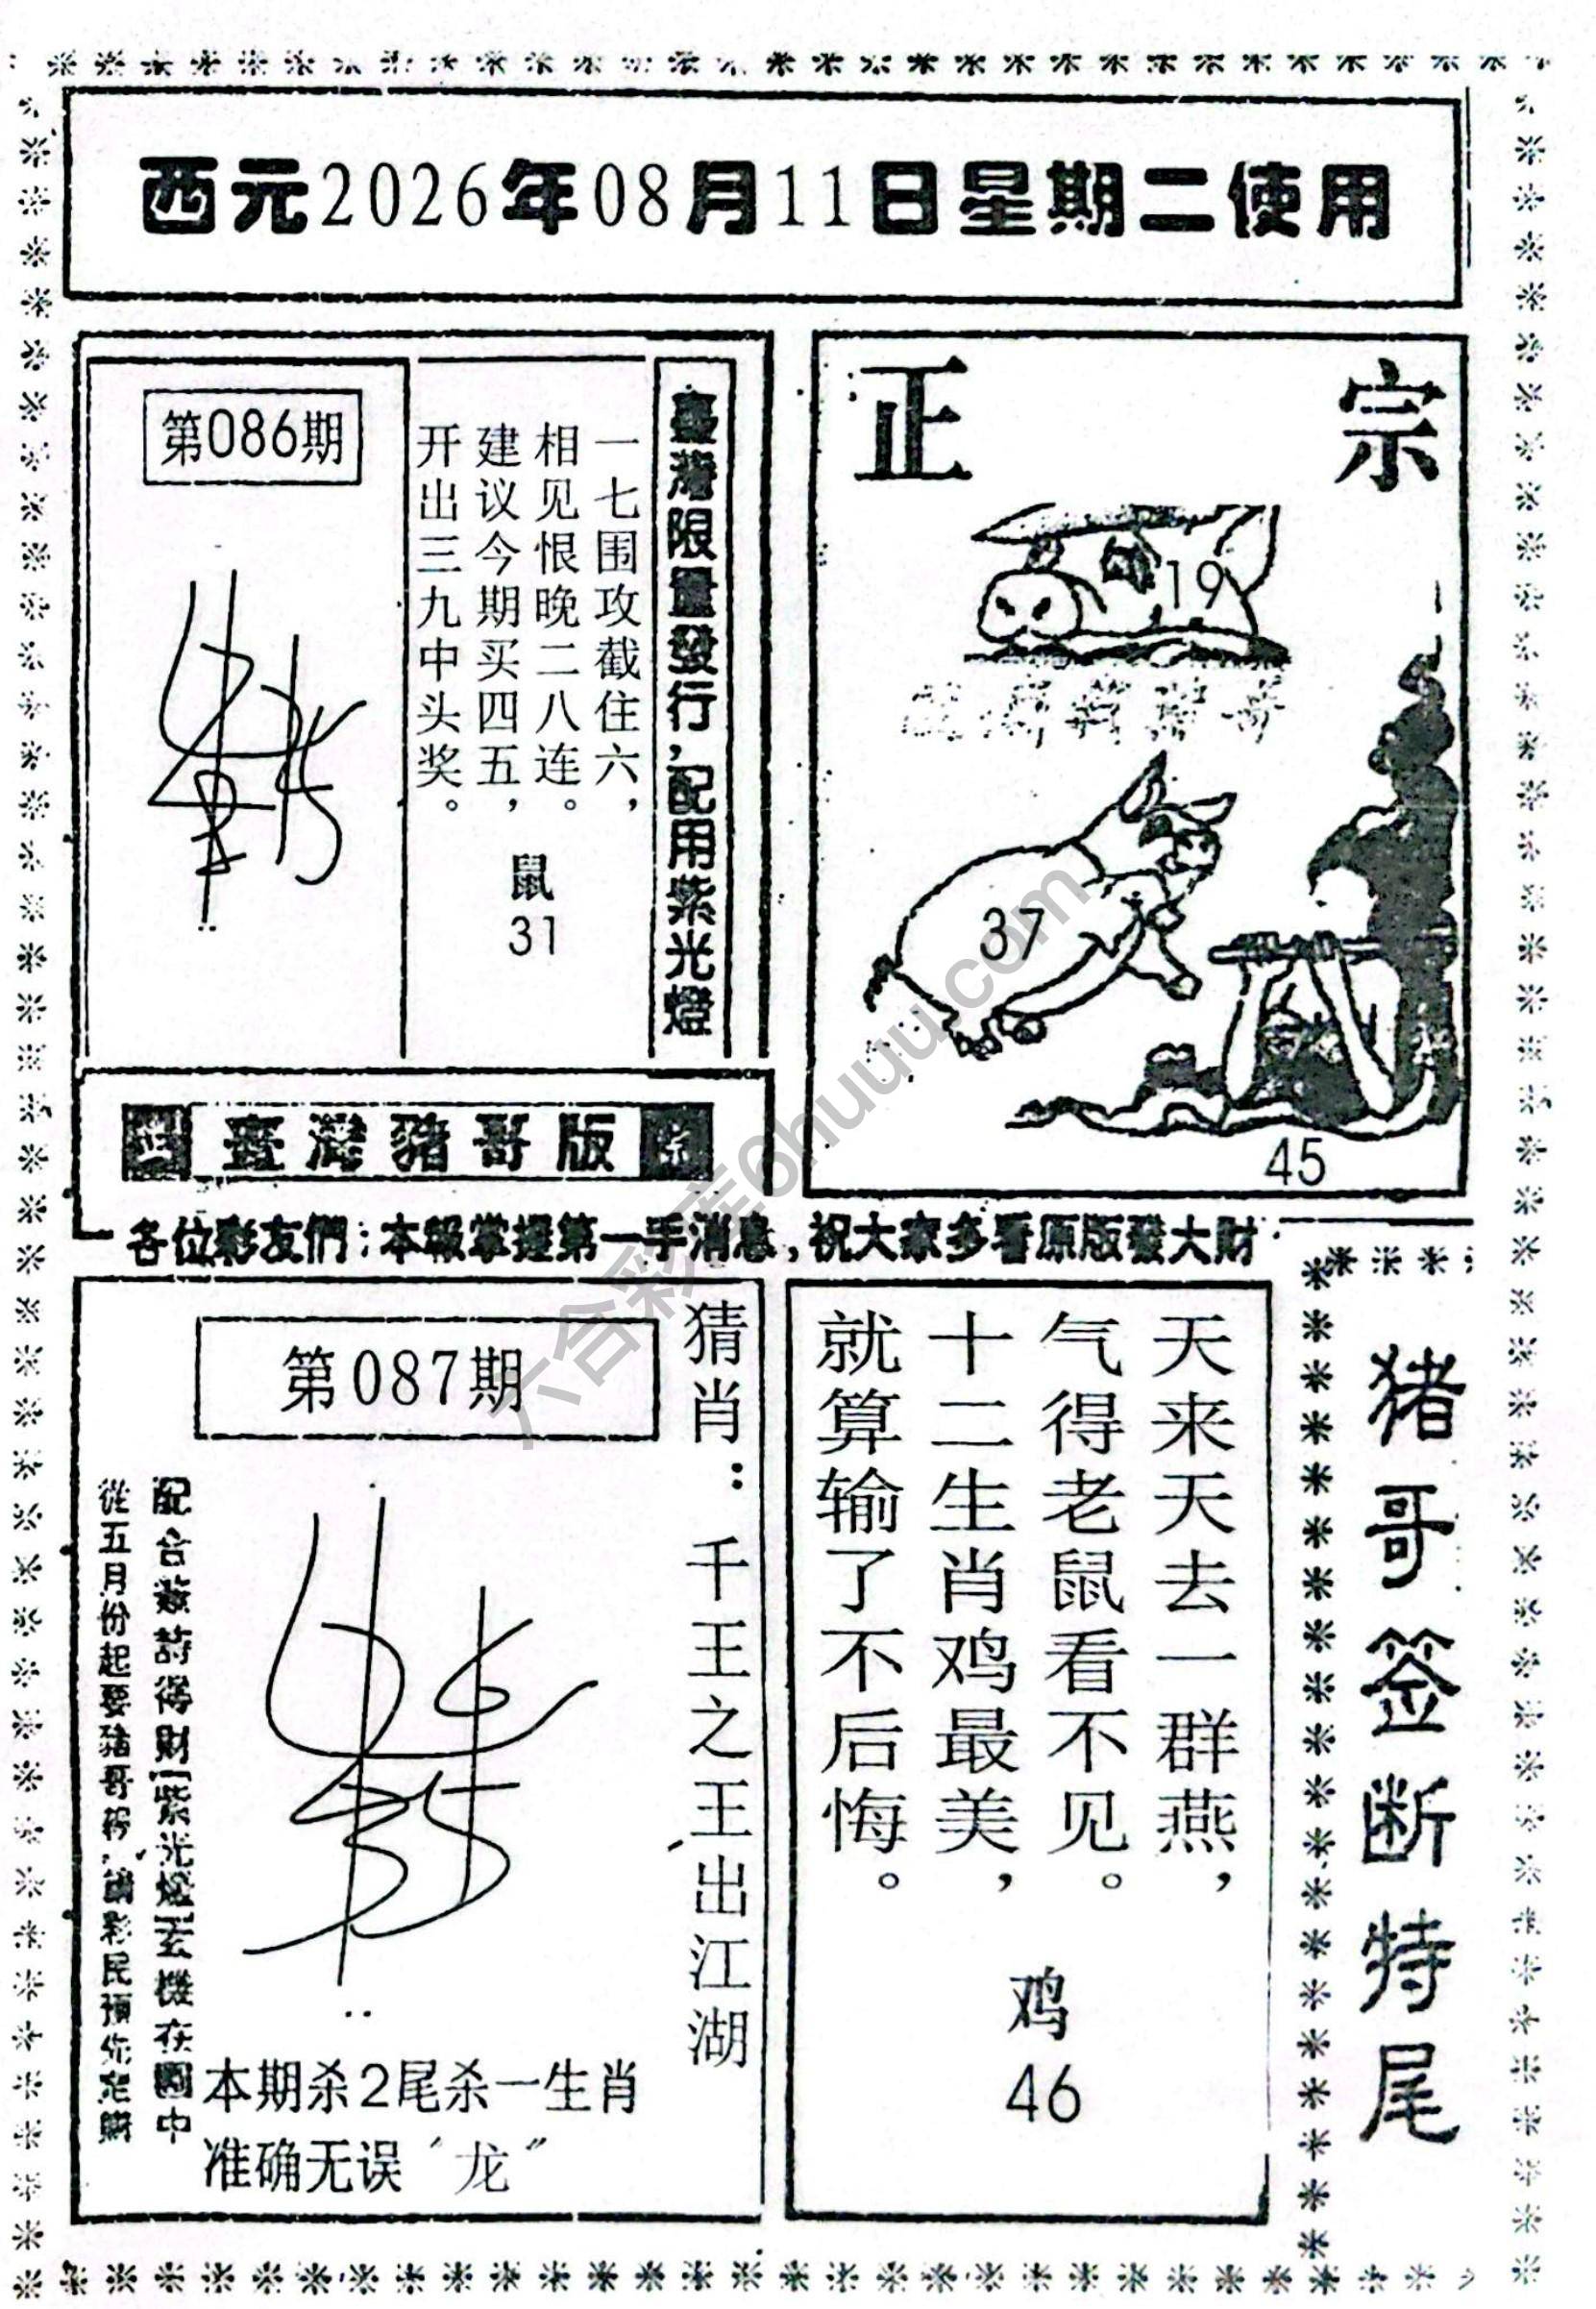 西元2026年08月11日星期二使用
第086期
一七围攻截住六，
相见恨晚二八连。
建议今期买四五，
开出三九中头奖。
鼠
31
臺灣限量發行，配用紫光燈
正宗
19
37
45
臺灣豬哥版
各位彩友們：本報掌握第一手消息，祝大家多看原版發大財
第087期
猜肖：千王之王出江湖
配合數詩得財[紫光燈]玄機在圖中
從五月份起要豬哥
請彩民預先定購
本期杀2尾杀一生肖
准确无误“龙”
天来天去一群燕，
气得老鼠看不见。
十二生肖鸡最美，
就算输了不后悔。
鸡
46
猪哥签断特尾
六合彩库6huuu.com